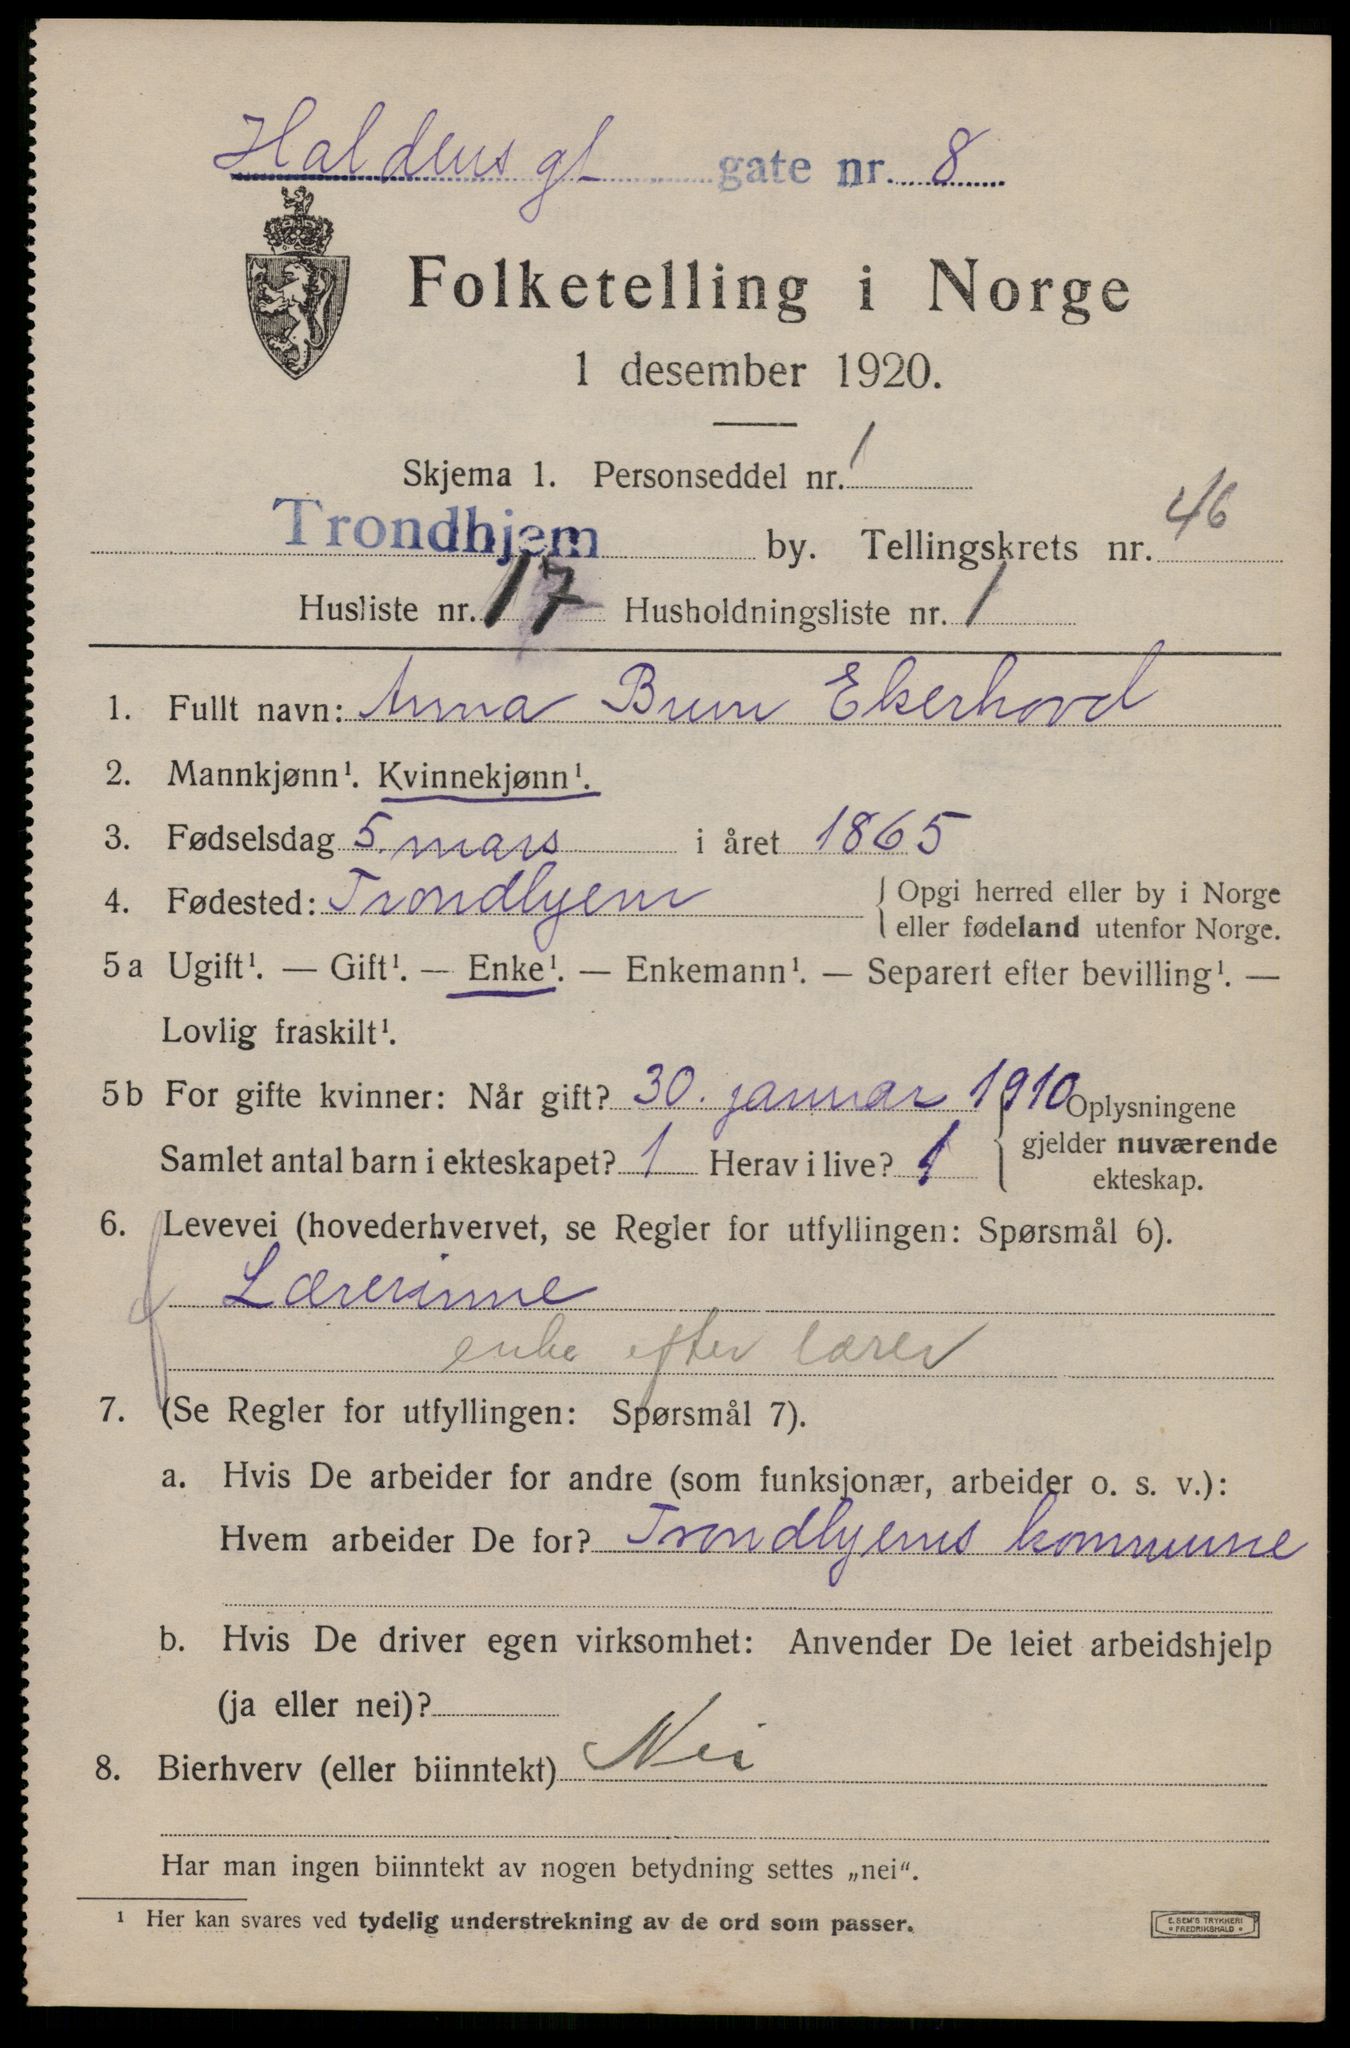 Haldens gt gate nr. 8
Folketelling i Norge
1 desember 1920.
Skjema 1. Personseddel nr. 1
Trondhjem by. Tellingskrets nr. 46
Husliste nr. 17 Husholdningsliste nr. 1
1. Fullt navn: Anna Brun Ekerhovd
2. Mannkjønn¹. Kvinnekjønn¹.
3. Fødselsdag 5. mars i året 1865
4. Fødested: Trondhjem { Opgi herred eller by i Norge
eller fødeland utenfor Norge.
5a Ugift¹. — Gift¹. — Enke¹. — Enkemann¹. — Separert efter bevilling¹. —
Lovlig fraskilt¹.
5b For gifte kvinner: Når gift? 30. januar 1910 Oplysningene
Samlet antal barn i ekteskapet? 1 Herav i live? 1 { gjelder nuværende
ekteskap.
6. Levevei (hovederhvervet, se Regler for utfyllingen: Spørsmål 6).
Lærerinne
enke efter lærer
7. (Se Regler for utfyllingen: Spørsmål 7).
a. Hvis De arbeider for andre (som funksjonær, arbeider o. s. v.):
Hvem arbeider De for? Trondhjems kommune
b. Hvis De driver egen virksomhet: Anvender De leiet arbeidshjelp
(ja eller nei)?
8. Bierhverv (eller biinntekt) Nei
Har man ingen biinntekt av nogen betydning settes „nei“.
¹ Her kan svares ved tydelig understrekning av de ord som passer.
E. SEM'S TRYKKERI
FREDRIKSHALD